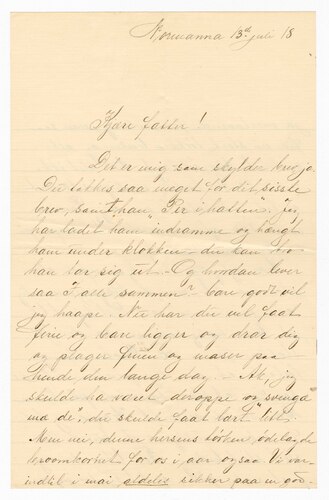 Normanna 13de juli 18
Kjære fatter!
Det er mig som skylder brev, ja.
Du takkes saa meget for dit sidste
brev, samt han "Per i hatten". Jeg
har ladet ham indramme og hængt
ham under klokken – du kan tro
han tar sig ut. – Og hvordan lever
saa I alle sammen? bare godt vil
jeg haape. Nu har du vel faat
ferie og bare ligger og drar dig
og plager fruen og maser paa
hende den lange dag. – Ak, jeg
skulde ha været deroppe og
de", du skulde faat lært litt.
Men nei, denne hersens tørken, odela de
for os i aar ogsaa. Vi var
indtil i mai aldeles sikker paa en god